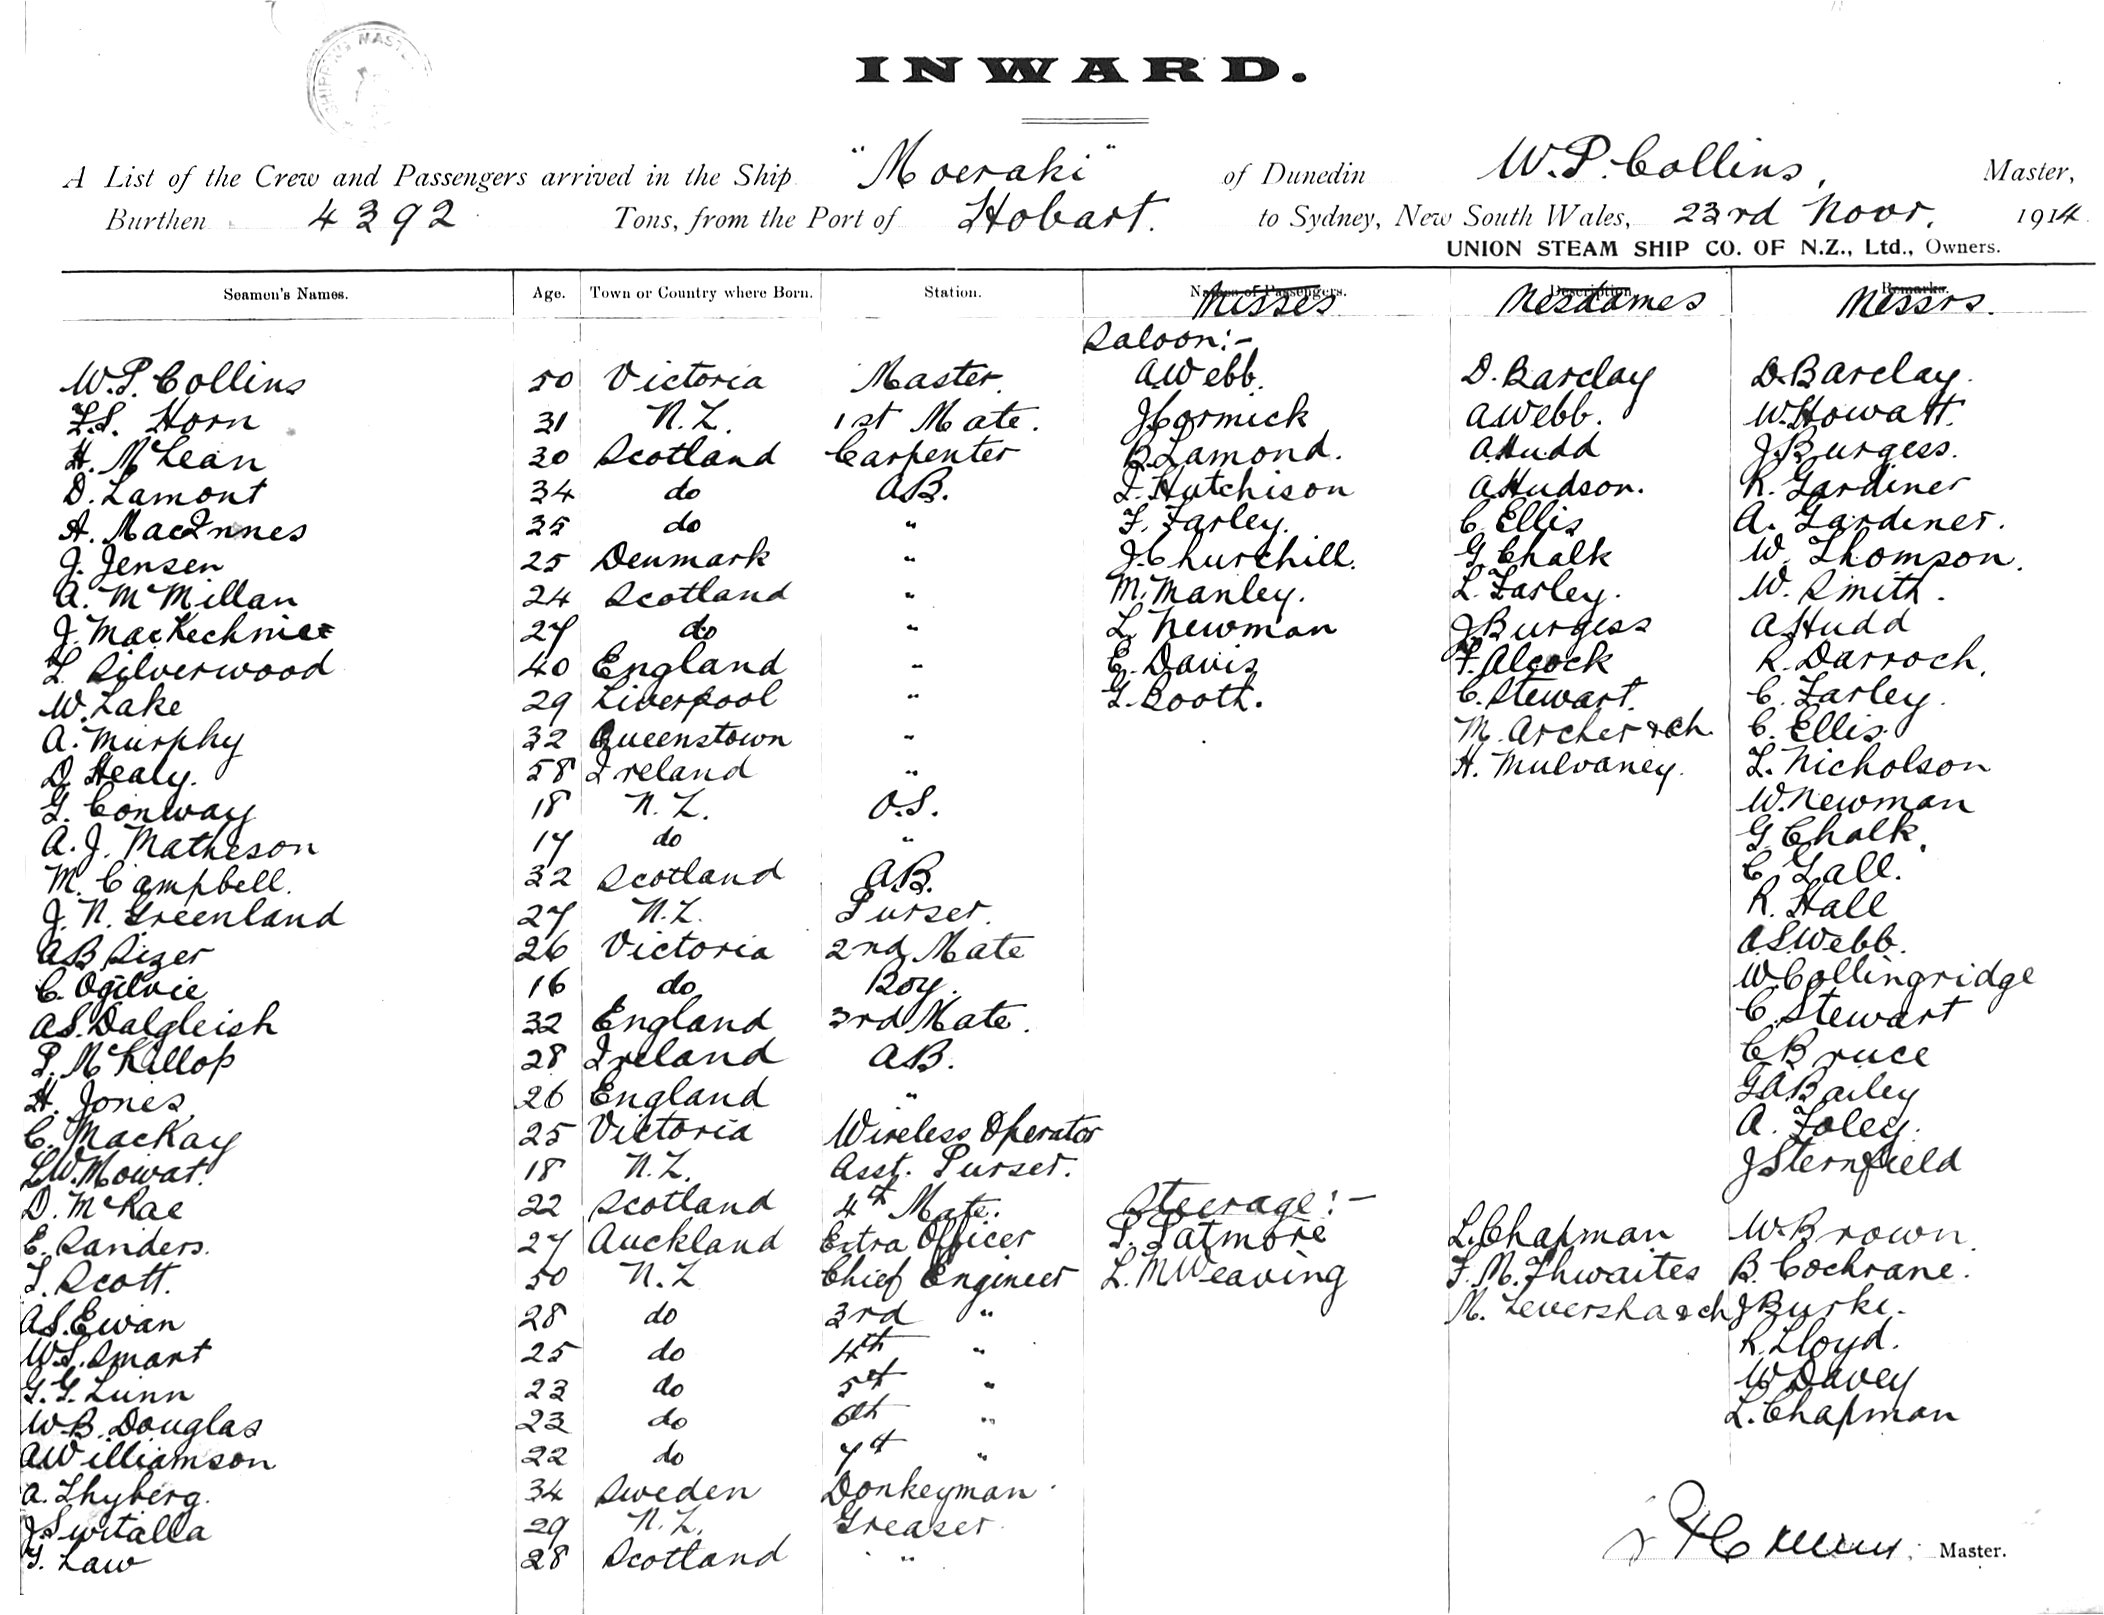 SHIPPING MASTE
INWARD.
A List of the Crew and Passengers arrived in the Ship "Moeraki" of Dunedin W.P. Collins, Master,
Burthen 4392 Tons, from the Port of Hobart. to Sydney, New South Wales, 23rd Novr, 1914
UNION STEAM SHIP CO. OF N.Z., Ltd., Owners.
Seamen's Names. Age. Town or Country where Born. Station. Names of Passengers. Description Remarks.
Misses Mesdames Messrs.
Saloon:-
W.P. Collins 50 Victoria Master. A Webb. D. Barclay D Barclay.
F.S. Horn 31 N.Z. 1st Mate. J Cormick A Webb. W. Howatt.
H. McLean 30 Scotland Carpenter B. Lamond. A Hudd J Burgess.
D. Lamont 34 do AB. I. Hutchison A Hudson. R. Gardiner
A. MacInnes 35 do " F. Farley. C. Ellis A. Gardiner.
J. Jensen 25 Denmark " J. Churchill. G Chalk W. Thomson.
A. McMillan 24 Scotland " M. Manley. L. Farley. W. Smith.
J. MacKechnie 27 do " L. Newman J Burgess A Hudd
L. Silverwood 40 England " E. Davis F. Alcock R. Darroch.
W. Lake 29 Liverpool " G. Booth. C. Stewart. C. Farley.
A. Murphy 32 Queenstown " M. Archer & ch. C. Ellis.
D. Healy. 58 Ireland " H. Mulvaney. L. Nicholson
G. Conway 18 N.Z. O.S. W. Newman
A.J. Matheson 17 do " G. Chalk.
M. Campbell. 32 Scotland AB. C. Gall.
J.N. Greenland 27 N.Z. Purser. R. Hall
AB Sizer 26 Victoria 2nd Mate A.S. Webb.
C. Ogilvie 16 do Boy. W. Collingridge
A.S. Dalgleish 32 England 3rd Mate. C. Stewart
P. McKillop 28 Ireland AB. C Bruce
H. Jones. 26 England " GA Bailey
C. MacKay 25 Victoria Wireless Operator A. Foley.
L.W. Mowat. 18 N.Z. Asst. Purser. J Sternfield
D. McRae 22 Scotland 4th Mate. Steerage:-
E. Sanders. 27 Auckland Extra Officer P. Patmore L. Chapman W. Brown.
T. Scott. 50 N.Z Chief Engineer L. McWeaving F.M. Thwaites B. Cochrane.
A.S. Ewan 28 do 3rd " M. Leversha & ch J Burke.
W.S. Smart 25 do 4th " R. Lloyd.
G.G. Lunn 23 do 5th " W Davey
W.B. Douglas 23 do 6th " L. Chapman
A Williamson 22 do 7th "
A. Thyberg. 34 Sweden Donkeyman.
J Switalla 29 N.Z. Greaser.
G. Law 28 Scotland "
Master.